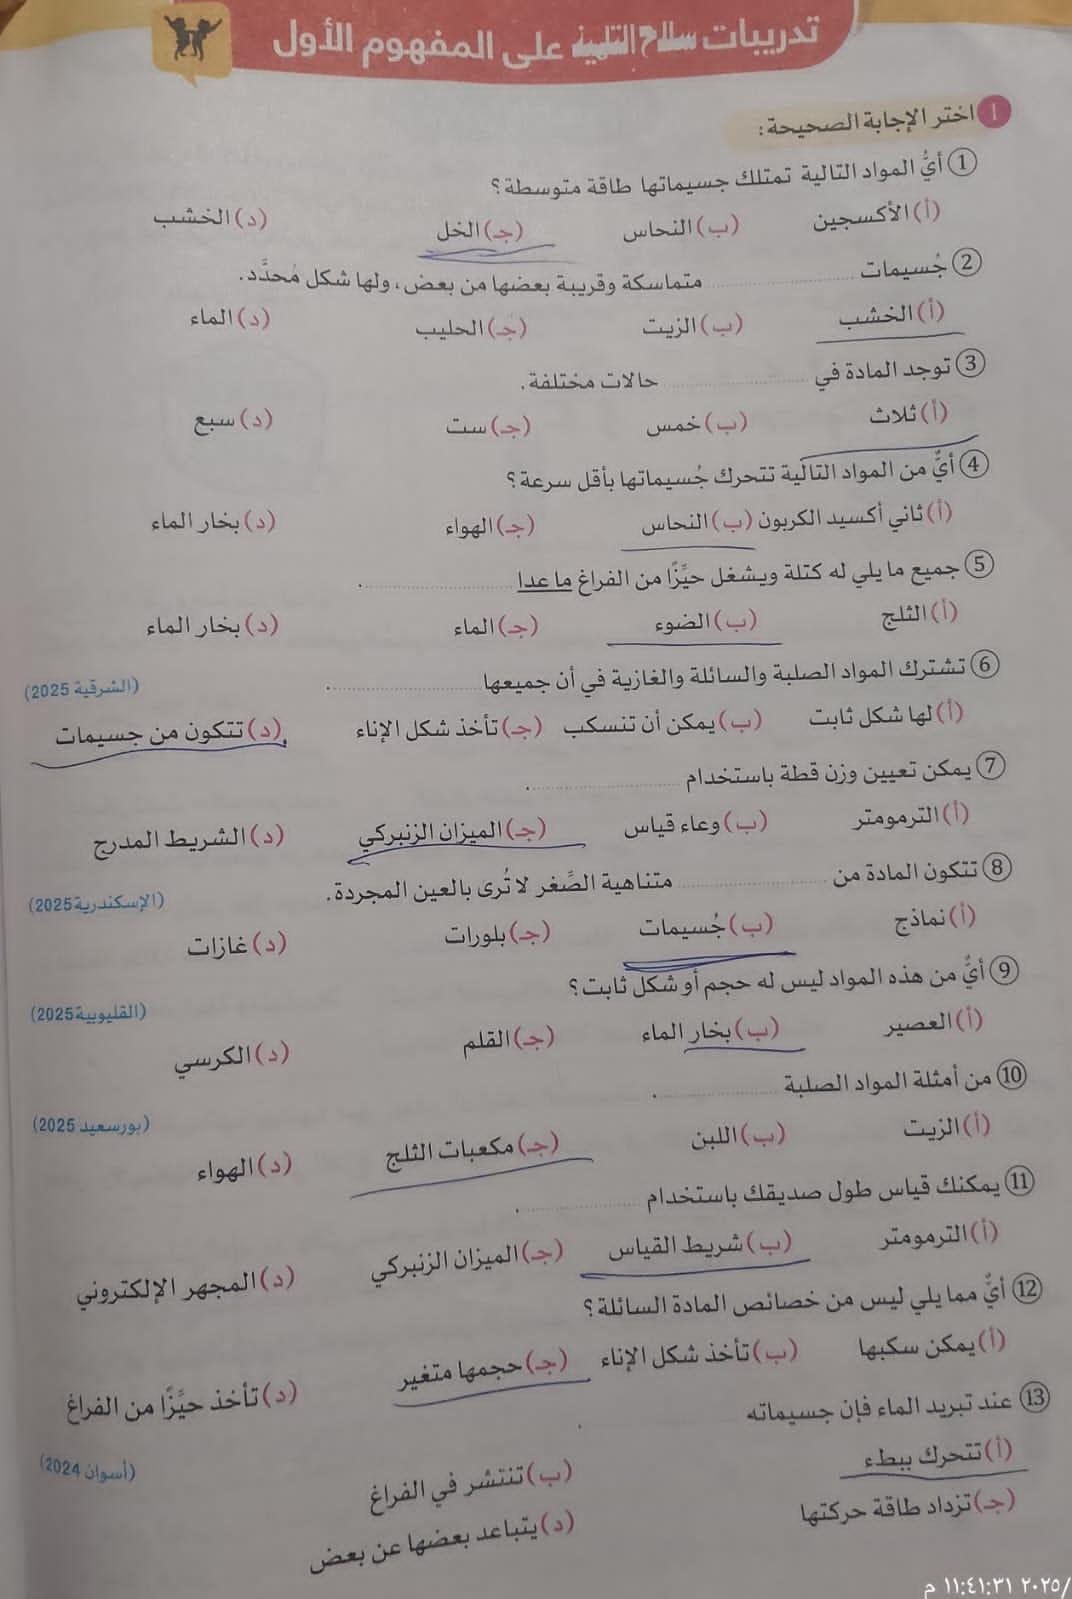 تدريبات سلاح التلميذ على المفهوم الأول
١ اختر الإجابة الصحيحة:
① أيُّ المواد التالية تمتلك جسيماتها طاقة متوسطة؟
(أ) الأكسجين (ب) النحاس (جـ) الخل (د) الخشب
② جُسيمات .................... متماسكة وقريبة بعضها من بعض، ولها شكل مُحدَّد.
(أ) الخشب (ب) الزيت (جـ) الحليب (د) الماء
③ توجد المادة في .................... حالات مختلفة.
(أ) ثلاث (ب) خمس (جـ) ست (د) سبع
④ أيٌّ من المواد التالية تتحرك جُسيماتها بأقل سرعة؟
(أ) ثاني أكسيد الكربون (ب) النحاس (جـ) الهواء (د) بخار الماء
⑤ جميع ما يلي له كتلة ويشغل حيِّزًا من الفراغ ما عدا .................... .
(أ) الثلج (ب) الضوء (جـ) الماء (د) بخار الماء
⑥ تشترك المواد الصلبة والسائلة والغازية في أن جميعها .................... . (الشرقية 2025)
(أ) لها شكل ثابت (ب) يمكن أن تنسكب (جـ) تأخذ شكل الإناء (د) تتكون من جسيمات
⑦ يمكن تعيين وزن قطة باستخدام .................... .
(أ) الترمومتر (ب) وعاء قياس (جـ) الميزان الزنبركي (د) الشريط المدرج
⑧ تتكون المادة من .................... متناهية الصِّغر لا تُرى بالعين المجردة. (الإسكندرية 2025)
(أ) نماذج (ب) جُسيمات (جـ) بلورات (د) غازات
⑨ أيٌّ من هذه المواد ليس له حجم أو شكل ثابت؟ (القليوبية 2025)
(أ) العصير (ب) بخار الماء (جـ) القلم (د) الكرسي
⑩ من أمثلة المواد الصلبة .................... . (بورسعيد 2025)
(أ) الزيت (ب) اللبن (جـ) مكعبات الثلج (د) الهواء
⑪ يمكنك قياس طول صديقك باستخدام .................... .
(أ) الترمومتر (ب) شريط القياس (جـ) الميزان الزنبركي (د) المجهر الإلكتروني
⑫ أيٌّ مما يلي ليس من خصائص المادة السائلة؟
(أ) يمكن سكبها (ب) تأخذ شكل الإناء (جـ) حجمها متغير (د) تأخذ حيِّزًا من الفراغ
⑬ عند تبريد الماء فإن جسيماته .................... . (أسوان 2024)
(أ) تتحرك ببطء (ب) تنتشر في الفراغ
(جـ) تزداد طاقة حركتها (د) يتباعد بعضها عن بعض
/٢٠٢٥ ١١:٤١:٣١ م